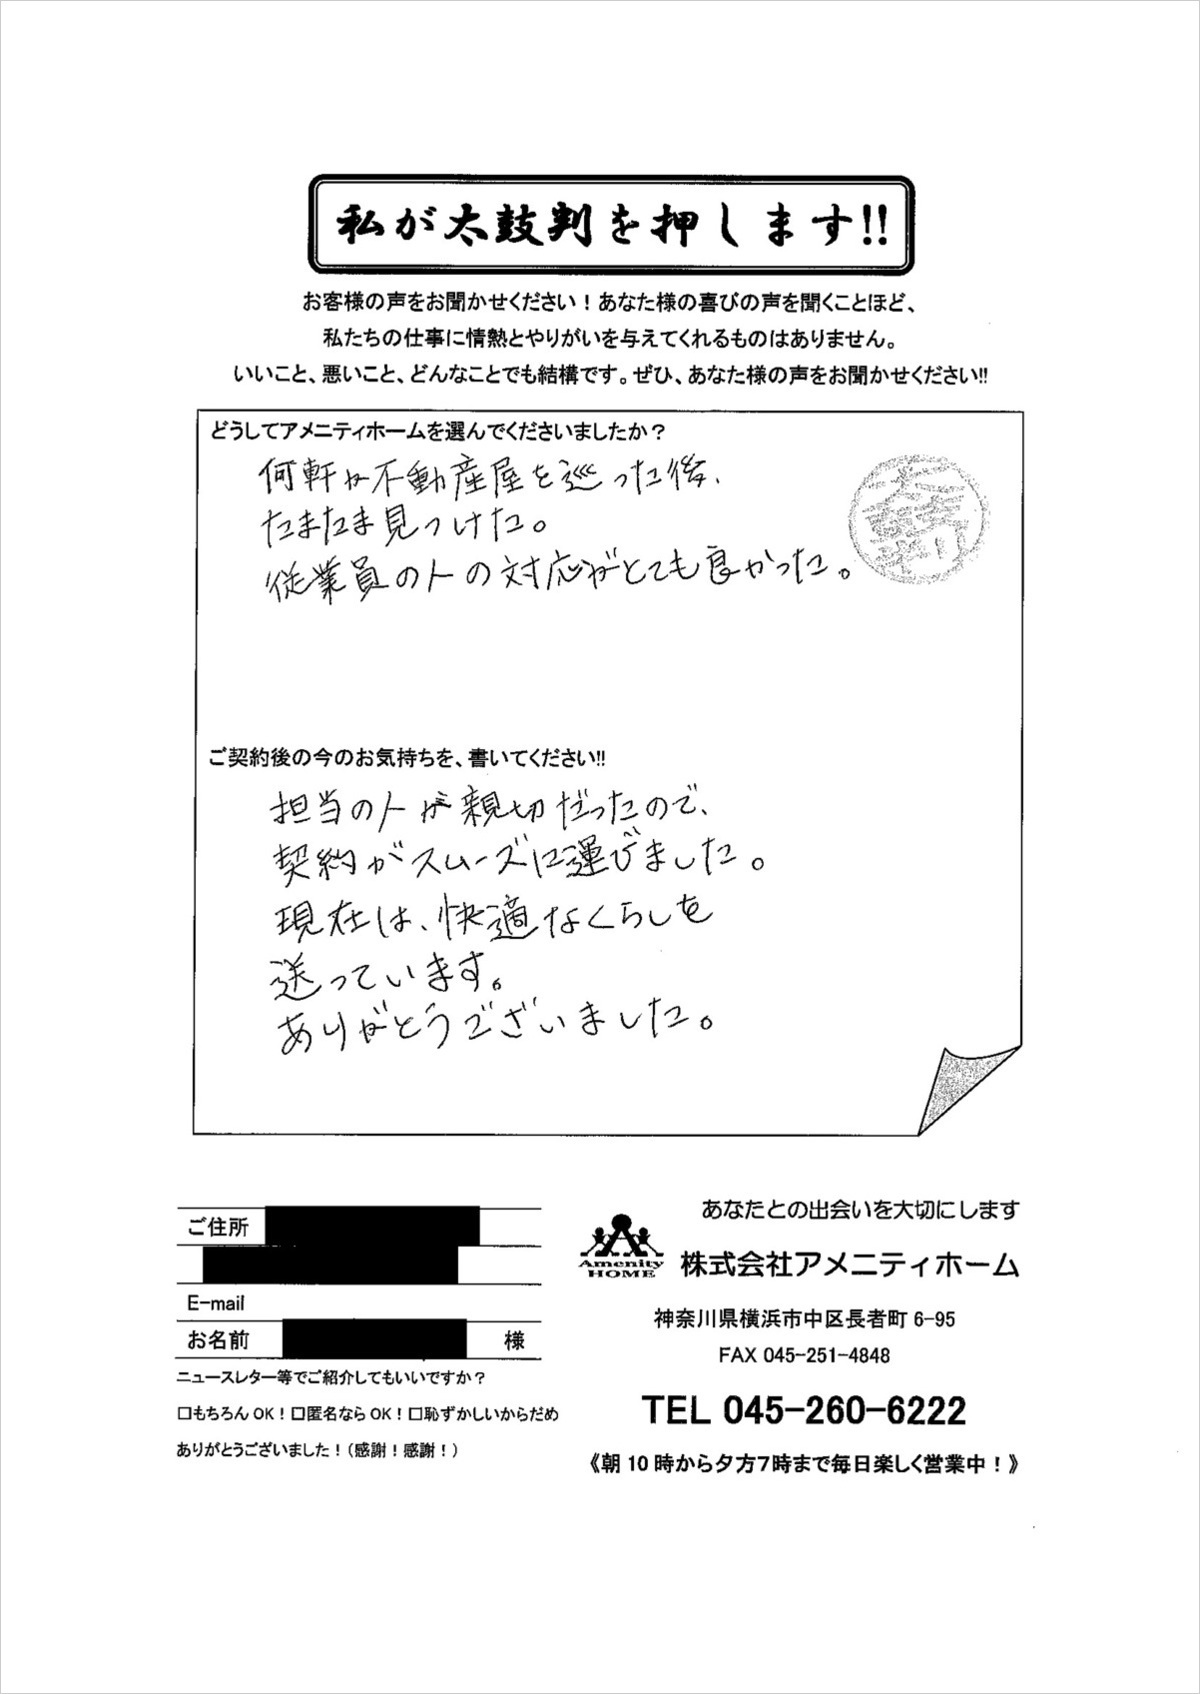 私が太鼓判を押します!!
お客様の声をお聞かせください！あなた様の喜びの声を聞くことほど、
私たちの仕事に情熱とやりがいを与えてくれるものはありません。
いいこと、悪いこと、どんなことでも結構です。ぜひ、あなた様の声をお聞かせください!!
どうしてアメニティホームを選んでくださいましたか？
何軒か不動産屋を巡った後、
たまたま見つけた。
従業員の人の対応がとても良かった。
ご契約後の今のお気持ちを、書いてください!!
担当の人が親切だったので、
契約がスムーズに運びました。
現在は、快適なくらしを
送っています。
ありがとうございました。
ご住所
E-mail
お名前 様
ニュースレター等でご紹介してもいいですか？
□もちろんOK！□匿名ならOK！□恥ずかしいからだめ
ありがとうございました！（感謝！感謝！）
あなたとの出会いを大切にします
Amenity
HOME
株式会社アメニティホーム
神奈川県横浜市中区長者町 6-95
FAX 045-251-4848
TEL 045-260-6222
《朝10時から夕方7時まで毎日楽しく営業中！》